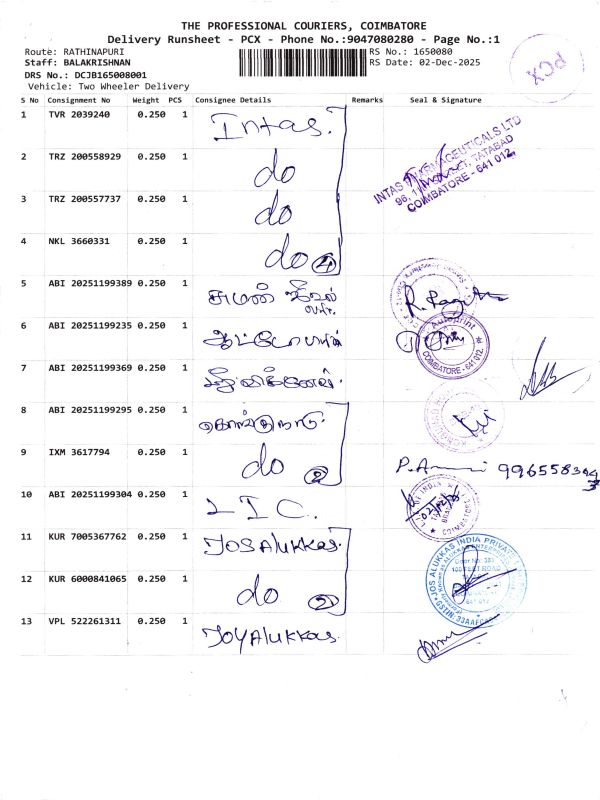 THE PROFESSIONAL COURIERS, COIMBATORE
Delivery Runsheet - PCX - Phone No.:9047080280 - Page No.:1
Route: RATHINAPURI
RS No.: 1650080
Staff: BALAKRISHNAN
RS Date: 02-Dec-2025
DRS No.: DCJB165008001
Vehicle: Two Wheeler Delivery
PCX
S No Consignment No Weight PCS Consignee Details Remarks Seal & Signature
1 TVR 2039240 0.250 1 Intas.
INTAS PHARMACEUTICALS LTD
TATABAD
COIMBATORE - 641 012.
2 TRZ 200558929 0.250 1 do
3 TRZ 200557737 0.250 1 do
4 NKL 3660331 0.250 1 do 4
5 ABI 20251199389 0.250 1
6 ABI 20251199235 0.250 1 ஆட்டோபிரின்
Autoprint
COIMBATORE - 641 012
7 ABI 20251199369 0.250 1
8 ABI 20251199295 0.250 1 கொங்குநாடு
9 IXM 3617794 0.250 1 do 2
10 ABI 20251199304 0.250 1 LIC.
COIMBATORE
11 KUR 7005367762 0.250 1 JOS Alukkas.
JOS ALUKKAS INDIA PRIVATE
100 FEET ROAD
12 KUR 6000841065 0.250 1 do 2
13 VPL 522261311 0.250 1 JOYAlukkas.